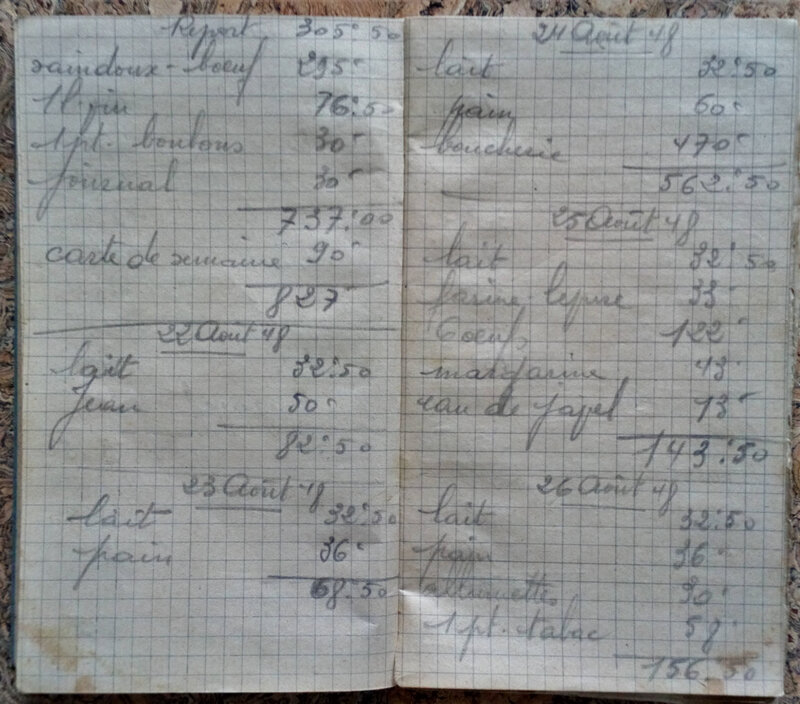 Report 305:50
saindoux-boeuf 295"
1 l. vin 76:50
1 pt. bonbons 30"
journal 30"
737:00
carte de semaine 90"
827"
22 Août 48
lait 32:50
Jean 50"
82:50
23 Août 48
lait 32:50
pain 36"
68:50
24 Août 48
lait 32:50
pain 60"
boucherie 470"
562:50
25 Août 48
lait 32:50
farine levure 33"
6 oeufs 122"
margarine 43"
eau de javel 13"
143:50
26 Août 48
lait 32:50
pain 36"
allumettes 30"
1 pt. tabac 58"
156.50